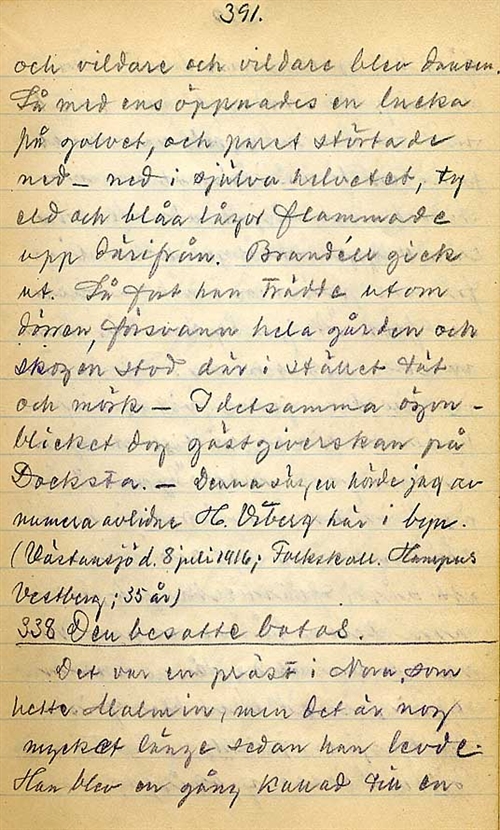 391.
och vildare och vildare blev dansen.
Så med ens öppnades en lucka
på golvet, och paret störtade
ned – ned i själva helvetet, ty
eld och blåa lågor flammade
upp därifrån. Brandéll gick
ut. Så fort han trädde utom
dörren, försvann hela gården och
skogen stod där i stället tät
och mörk – I detsamma ögon-
blicket dog gästgiverskan på
Docksta. – Denna sägen hörde jag av
numera avlidne H. Öberg här i byn.
(Västansjö d. 8 juli 1916; Folkskoll. Hampus
Vestberg; 35 år)
338 Den besatte botas.
Det var en präst i Nora, som
hette Malmin, men det är nog
mycket länge sedan han levde.
Han blev en gång kallad till en